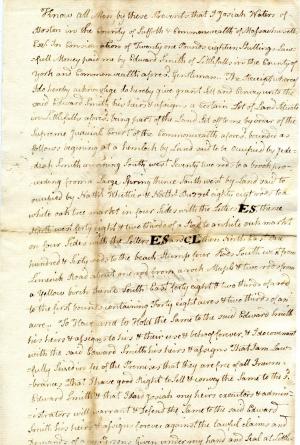 Know all Men by these Presents that I Josiah Waters of
Boston in the County of Suffolk & Commonwealth of Massachusetts
Esqr In Consideration of Twenty one Pounds eighteen Shillings Law-
full Money paid me by Edward Smith of Litchfield in the County of
York and Commonwealth aforesd Gentleman The Receipt whereof
I do hereby acknowledge do hereby give grant sell and convey unto the
said Edward Smith his heirs & assigns a Certain Lot of Land
in Litchfield aforesd being part of the Land set off to me by order of the
Supreme Judicial Court of the Commonwealth aforesd bounded as
follows begining at a hemlock by Land said to be occupied by
Smith runing South west Seventy two rods to a brook pro-
ceeding from a Large Spring thence South west by Land said to
occupied by
white oak tree markt on four Sides with the Letters ES thence
North west forty eight & two thirds of a Rod to a white oak markt
on four Sides with the Letters ES and CL then North East one
hundred & sixty rods to the beach Stump four Rods South west from
Limerick Road about one rod from a rock Maple & two rods from
a Yellow birch thence South East forty eight & two thirds of a rod
to the first bounds containing forty eight acres & two thirds of an
acre. To Have and to Hold the Same to the said Edward Smith
his heirs & assigns to his & their use & behoof forever, & I do covenant
with the said Edward Smith his heirs & assigns That I am Law-
fully Seized in fee of the Premises that they are free of all Incum-
brances That I have good Right to Sell & convey the Same to the sd
Edward Smith & that I said Josiah my heirs executors & admin-
istrators will warrant & defend the Same to the said Edward
Smith his heirs & assigns forever against the lawful claims and
demands of all persons Given under my hand and Seal at